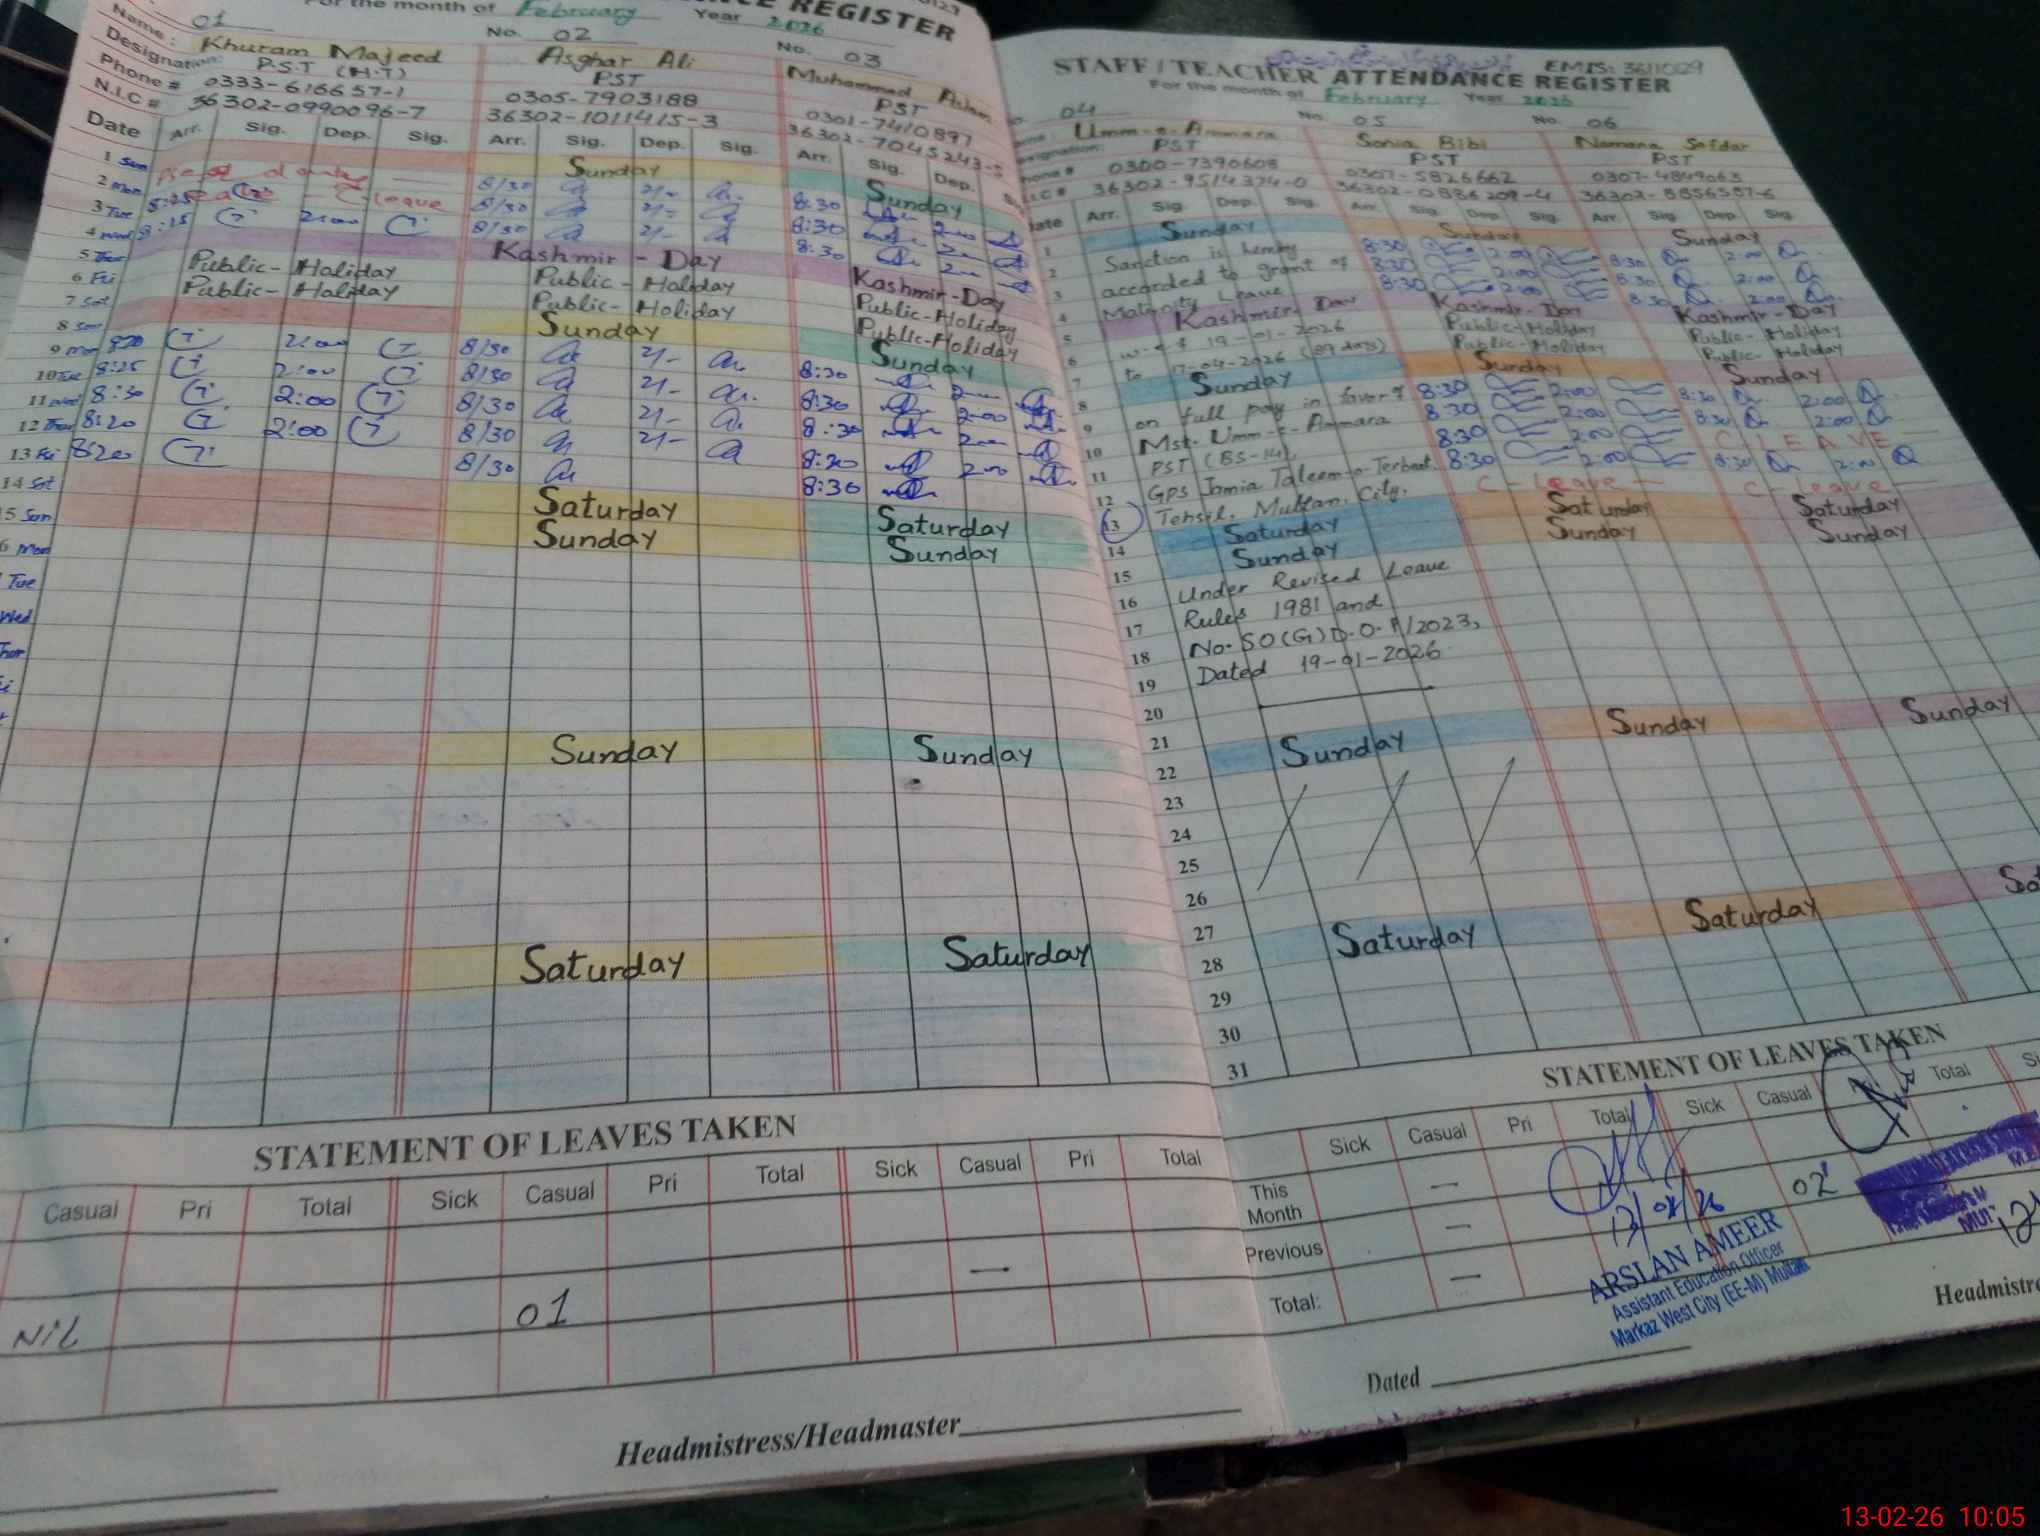 CE REGISTER
For the month of February Year 2026
Name: 01 No. 02 No. 03
Khuram Majeed Asghar Ali Muhammad
Designation: P.S.T (H.T) PST PST
Phone # 0333-6166571 0305-7903188 0301-7410897
N.I.C # 36302-0990096-7 36302-1011415-3 36302-7045243-5
Date Arr. Sig. Dep. Sig. Arr. Sig. Dep. Sig. Arr. Sig. Dep.
1 Sun Sunday Sunday
2 Mon C-leave 8/30 2/- 8:30
3 Tue 8:25 8/30 2/- 8:30 2:00
4 Wed 8:15 2:00 8/30 2/- 8:30 2:00
5 Thur Kashmir - Day Kashmir-Day
6 Fri Public-Holiday Public-Holiday Public-Holiday
7 Sat Public-Holiday Public-Holiday Public-Holiday
8 Sun Sunday Sunday
9 Mon 8:20 2:00 8/30 2/- 8:30 2:00
10 Tue 8:25 2:00 8/30 2/- 8:30 2:00
11 Wed 8:30 2:00 8/30 2/- 8:30 2:00
12 Thur 8:20 2:00 8/30 2/- 8:30 2:00
13 Fri 8:20 8/30 8:30
14 Sat Saturday Saturday
15 Sun Sunday Sunday
6 Mon
Tue
Wed
Thur
Sunday Sunday
Saturday Saturday
STATEMENT OF LEAVES TAKEN
Casual Pri Total Sick Casual Pri Total Sick Casual Pri Total
—
Nil 01
Headmistress/Headmaster
EMIS: 3611029
STAFF / TEACHER ATTENDANCE REGISTER
For the month of February Year 2026
04 No. 05 No. 06
Umm-e-Ammara Sonia Bibi Namana Safdar
PST PST PST
0300-7390608 0307-5826662 0307-4849063
36302-9514374-0 36302-0886209-4 36302-8856587-6
Arr. Sig. Dep. Sig. Arr. Sig. Dep. Sig. Arr. Sig. Dep. Sig.
1 Sunday Sunday Sunday
2 Sanction is hereby 8:30 2:00 8:30 2:00
3 accorded to grant of 8:30 2:00 8:30 2:00
4 Maternity Leave 8:30 2:00 8:30 2:00
5 Kashmir Day Kashmir-Day Kashmir-Day
6 w-e-f 19-01-2026 Public-Holiday Public-Holiday
7 to 17-04-2026 (89 days) Public-Holiday Public-Holiday
8 Sunday Sunday Sunday
9 on full pay in favor of 8:30 2:00 8:30 2:00
10 Mst. Umm-e-Ammara 8:30 2:00 8:30 2:00
11 PST (BS-14), 8:30 2:00 C-LEAVE
12 GPS Jamia Taleem-o-Terbeat 8:30 2:00 8:30 2:00
13 Tehsil. Multan. City. C-Leave C-Leave
14 Saturday Saturday Saturday
15 Sunday Sunday Sunday
16 Under Revised Leave
17 Rules 1981 and
18 No. SO(G)D.O.P/2023,
19 Dated 19-01-2026
20
21
22 Sunday Sunday Sunday
23
24
25
26
27
28 Saturday Saturday
29
30
31
STATEMENT OF LEAVES TAKEN
Sick Casual Pri Total Sick Casual Total
This Month — 02
Previous —
Total: —
13/02/26
ARSLAN AMEER
Assistant Education Officer
Markaz West City (EE-M) Multan
Headmistre
Dated
13-02-26 10:05